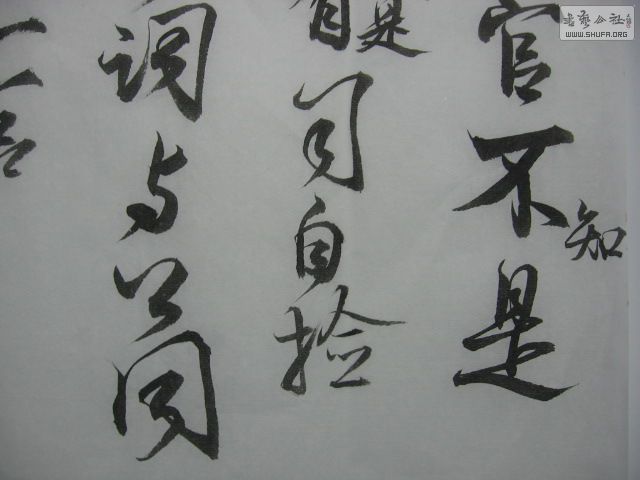 官不知是
是司自捡
词与公同
書藝公社
WWW.SHUFA.ORG